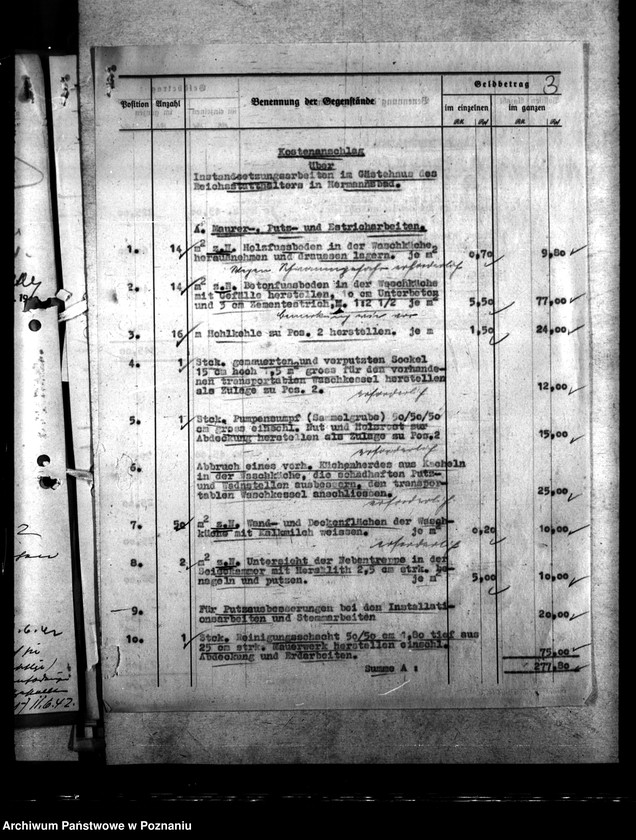 3
Position Anzahl Benennung der Gegenstände Geldbetrag
im einzelnen im ganzen
RM Rpf RM Rpf
Kostenanschlag
Über
Instandsetzungsarbeiten im Gästehaus des
Reichsstatthalters in Hermannsbad.
A. Maurer-, Putz- und Estricharbeiten.
1. 14 m² z.H. Holzfussboden in der Waschküche
herausnehmen und draussen lagern. je m² 0,70 9,80
wegen Schwammgefahr erforderlich
2. 14 m² z.H. Betonfussboden in der Waschküche
mit Gefälle herstellen. 10 cm Unterbeton
und 3 cm Zementestrich. 1:2 1/2 je m² 5,50 77,00
3. 16 m Hohlkehle zu Pos. 2 herstellen. je m 1,50 24,00
4. 1 Stck. gemauerten und verputzten Sockel
15 cm hoch 1,5 m² gross für den vorhande-
nen transportablen Waschkessel herstellen
als Zulage zu Pos. 2. 12,00
erforderlich
5. 1 Stck. Pumpensumpf (Sammelgrube) 50/50/50
cm gross einschl. Nut und Holzrost zur
Abdeckung herstellen als Zulage zu Pos.2 15,00
erforderlich
6. Abbruch eines vorh. Küchenherdes aus Kacheln
in der Waschküche, die schadhaften Putz-
und Wandstellen ausbessern, den transpor-
tablen Waschkessel anschliessen. 25,00
erforderlich
7. 50 m² z.H. Wand- und Deckenflächen der Wasch-
küche mit Kalkmilch weissen. je m² 0,20 10,00
erforderlich
8. 2 m² z.H. Untersicht der Nebentreppe in der
mit Heraklith 2,5 cm strk. be-
nageln und putzen. je m² 5,00 10,00
9. Für Putzausbesserungen bei den Installati-
onsarbeiten und Stemmarbeiten 20,00
10. 1 Stck. Reinigungsschacht 50/50 cm 1,80 tief aus
25 cm strk. Mauerwerk herstellen einschl.
Abdeckung und Erdarbeiten. 75,00
Summe A : 277,80
11.6.42.
Archiwum Państwowe w Poznaniu